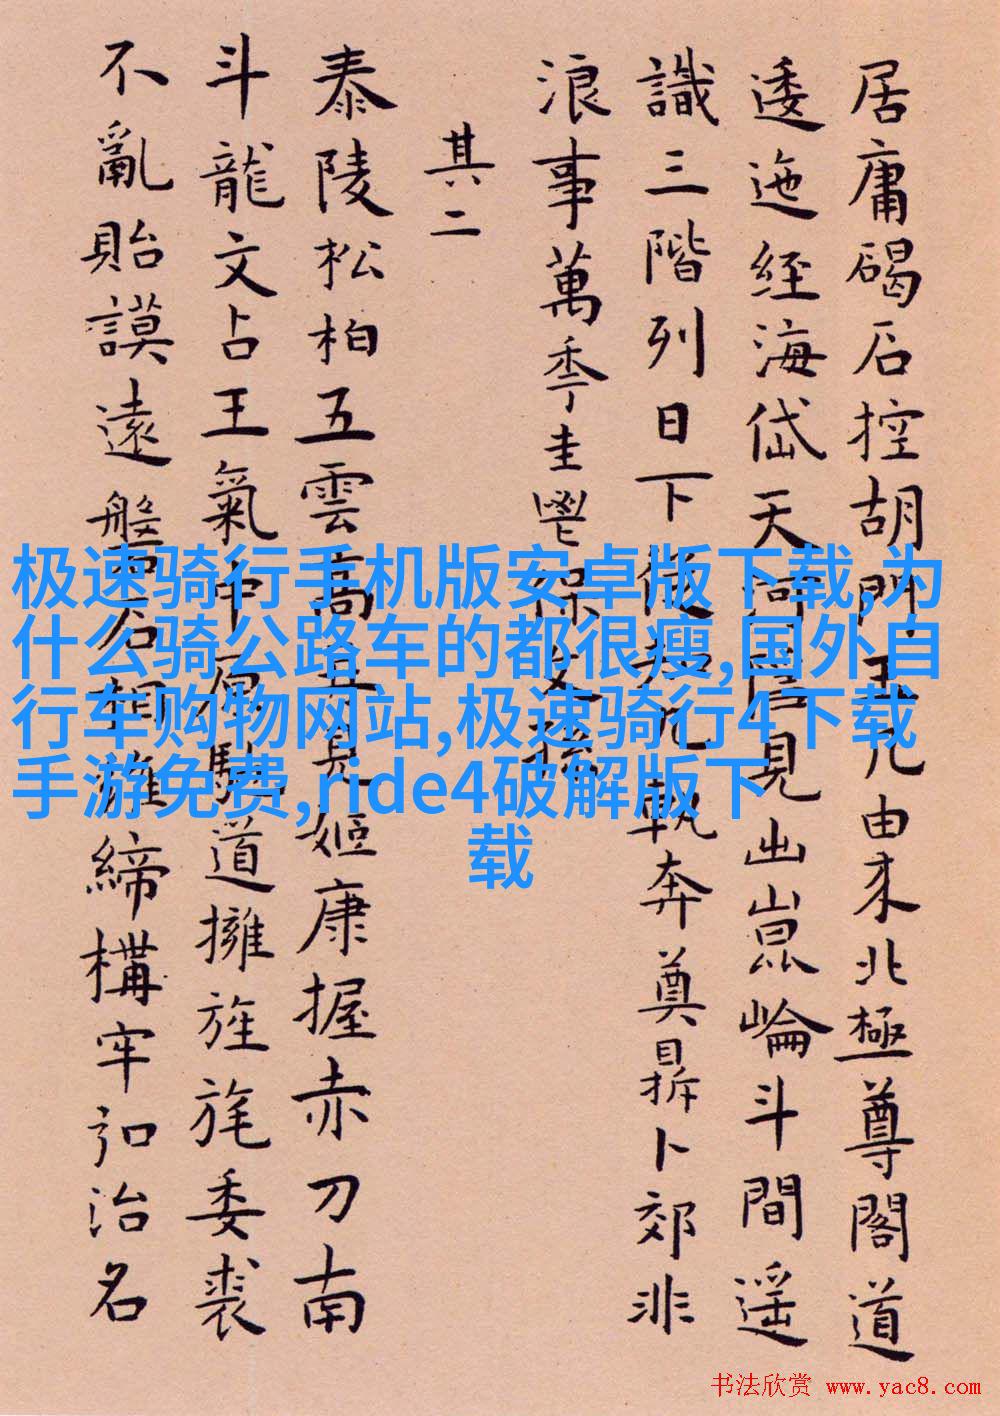 居庸碣石控胡門玉几由来北極尊閣道
逶迤經海岱天河見出崑崙斗間遥
識三階列日下從知九執奔奠鼎卜郊非
浪事萬季圭鬯保文孫
其二
泰陵松柏五雲高豈是姬康握赤刀南
斗龍文占王氣中原馳道擁旌旄委裘
不亂貽謨遠盤石相維締構牢治名
极速骑行手机版安卓版下载,为
什么骑公路车的都很瘦,国外自
行车购物网站,极速骑行4下载
手游免费,ride4破解版下
载
书法欣赏 www.yac8.com